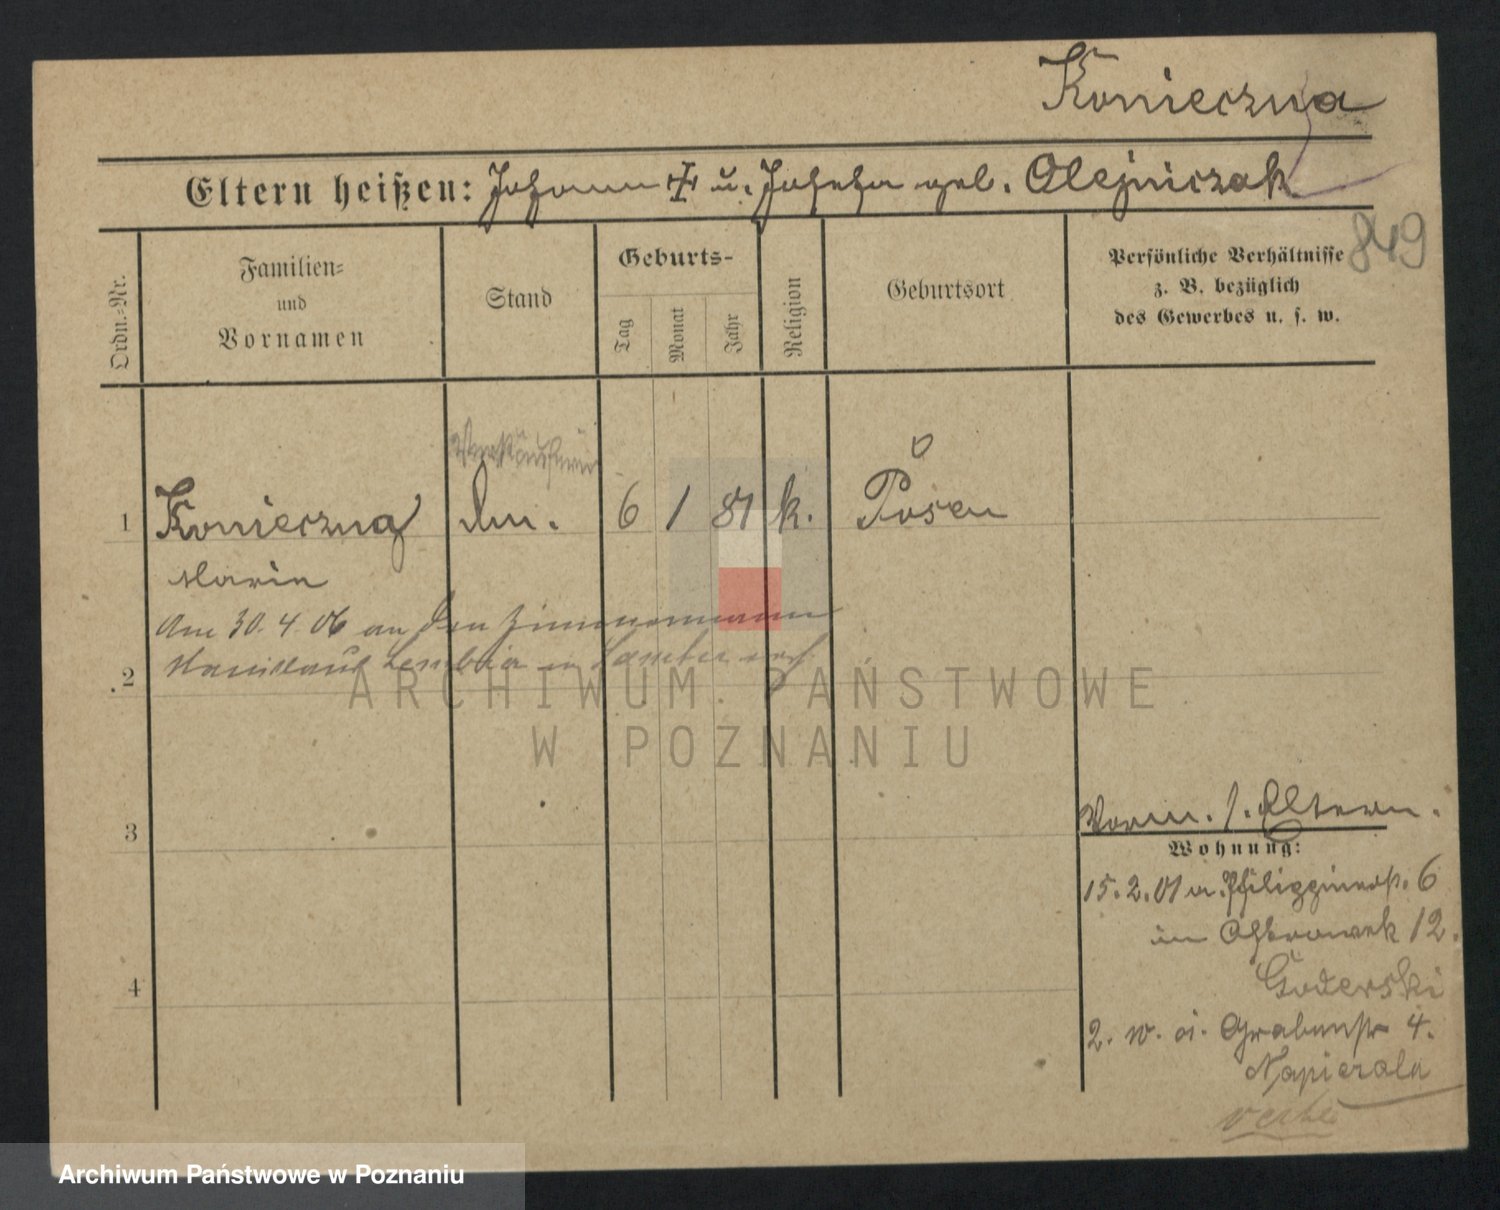 Konieczna
Eltern heißen: Johann ✝ u. Josefa geb. Olejniczak
849
Ordn.-Nr.
Familien-
und
Vornamen
Stand
Geburts-
Tag
Monat
Jahr
Religion
Geburtsort
Persönliche Verhältnisse
z. B. bezüglich
des Gewerbes u. s. w.
Verkäuferin
1 Konieczna 6 1 81 k. Posen
Marie
Am 30.4.06 an den Zimmermann
Stanislaus in Samter verh.
2
ARCHIWUM PAŃSTWOWE
W POZNANIU
3
Vorm. s. Eltern.
Wohnung:
15.2.01 a. Philippinerstr. 6
im Ostrowek 12.
4
Goderski
2. Grabenstr 4.
Napierala
verte
Archiwum Państwowe w Poznaniu